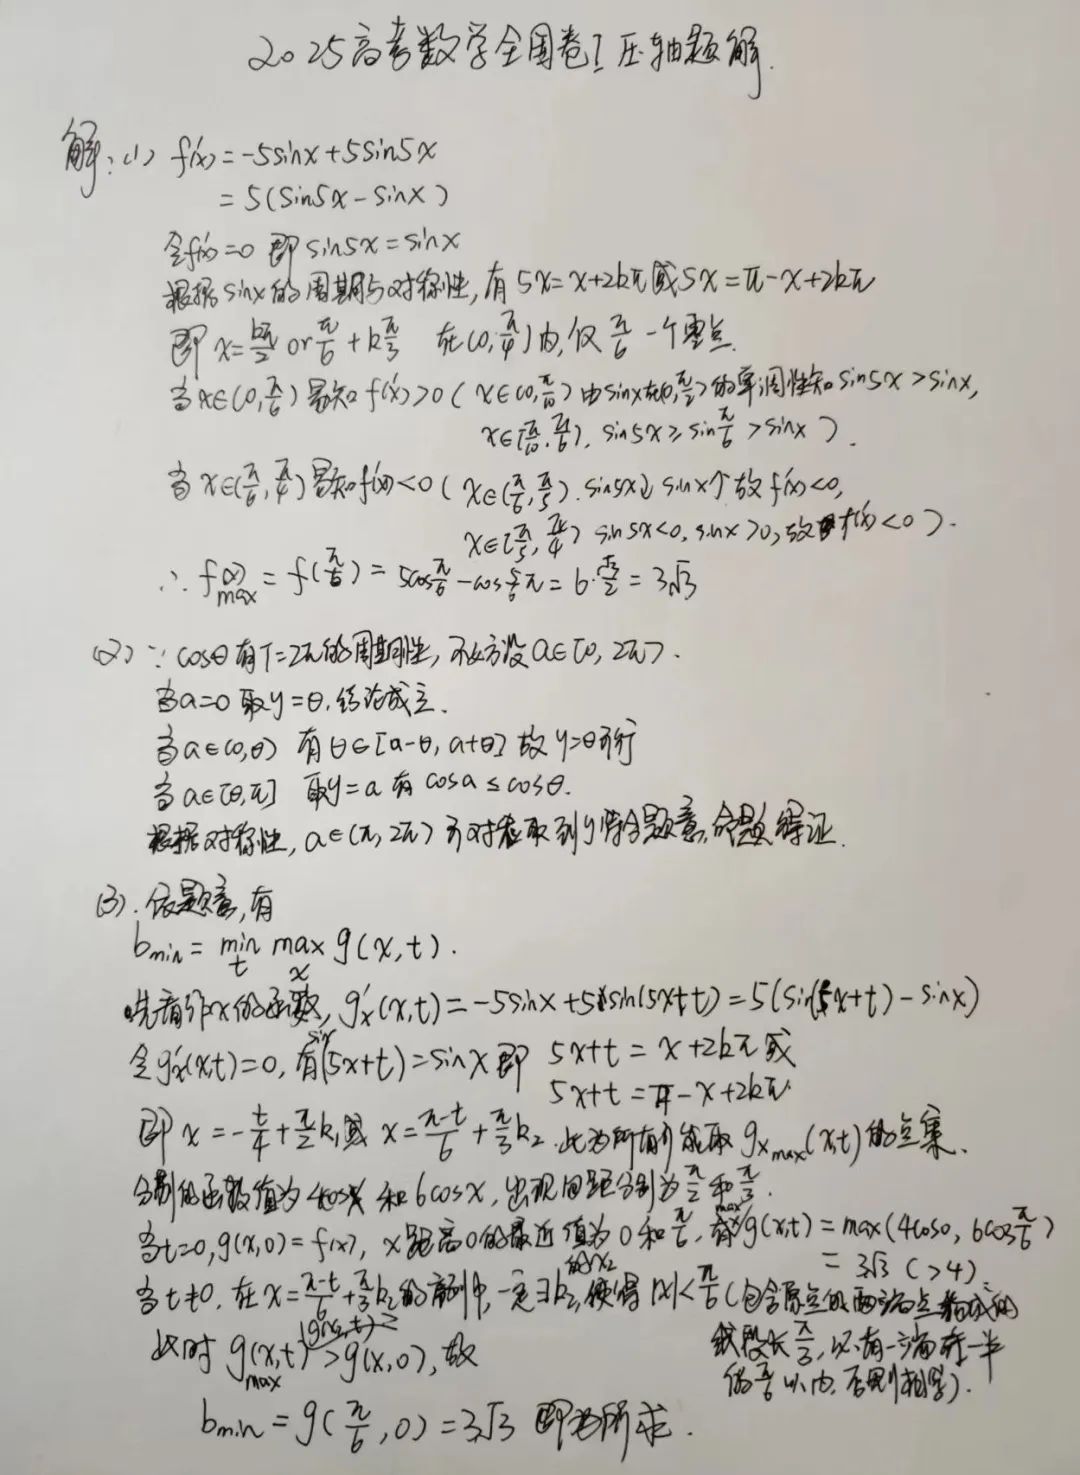 2025高考数学全国卷I压轴题解.
解:(1) f'(x)=-5sinx+5sin5x
=5(sin5x-sinx)
令f'(x)=0 即sin5x=sinx
根据sinx的周期与对称性,有5x=x+2kπ或5x=π-x+2kπ
即x=kπ/2 or π/6+kπ/3 在(0,π/4)内,仅π/6一个零点.
当x∈(0,π/6)易知f'(x)>0(x∈(0,π/10)由sinx在(0,π/2)的单调性知sin5x>sinx,
x∈[π/10,π/6),sin5x≥sinπ/6>sinx).
当x∈(π/6,π/4)易知f'(x)<0(x∈(π/6,π/5).sin5x↓sinx↑故f'(x)<0,
x∈[π/5,π/4) sin5x<0,sinx>0,故f'(x)<0).
∴f(x)max=f(π/6)=5cosπ/6-cos5/6π=6·√3/2=3√3
(2)∵cosθ有T=2π的周期性,不妨设a∈[0,2π).
当a=0取y=θ,结论成立.
当a∈(0,θ)有θ∈[a-θ,a+θ]故y=θ可行
当a∈[θ,π] 取y=a有cosa≤cosθ.
根据对称性,a∈(π,2π)可对称取到y符合题意,命题得证.
(3).依题意,有
bmin=min t max x g(x,t).
先看作x的函数,g'x(x,t)=-5sinx+5sin(5x+t)=5(sin(5x+t)-sinx)
令g'x(x,t)=0,有sin(5x+t)=sinx即 5x+t=x+2kπ或
5x+t=π-x+2kπ.
即x=-t/4+π/2k₁或x=π-t/6+π/3k₂.此为所有可能取gxmax(x,t)的点集.
分别的函数值为4cosx和6cosx,出现间距分别为π/2和π/3.
当t=0,g(x,0)=f(x),x距离0的最近值为0和π/6,有max g(x,t)=max(4cos0,6cosπ/6)
=3√3(>4)
当t≠0,在x=π-t/6+π/3k₂的序列中,一定∃k₂的x₂,使得|x|<π/6(包含原点的两端点构成的
线段长π/3,必有一端在一半
的π/6以内,否则相等).
此时g(x,t)max>g(x,0),故
bmin=g(π/6,0)=3√3 即为所求.